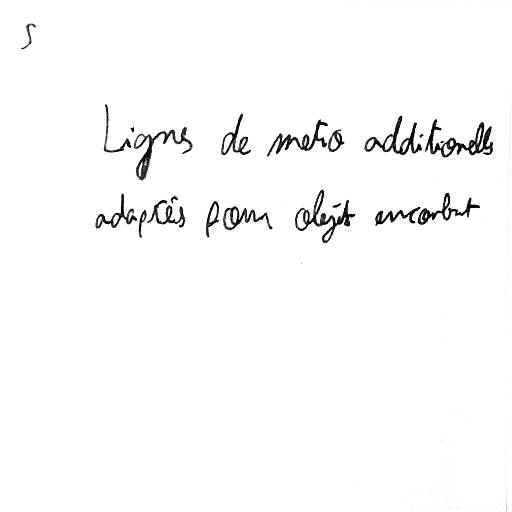 S
Lignes de metro additionells
adaptées pour objet encombrant